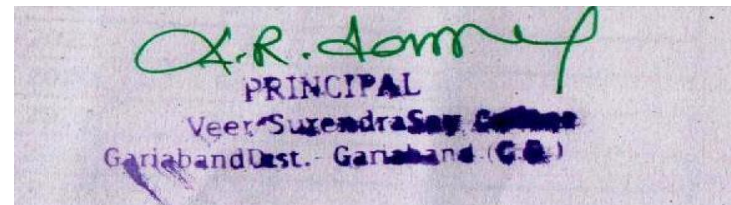 PRINCIPAL
Veer Surendra Say College
Gariaband Dist.- Gariaband (C.G.)